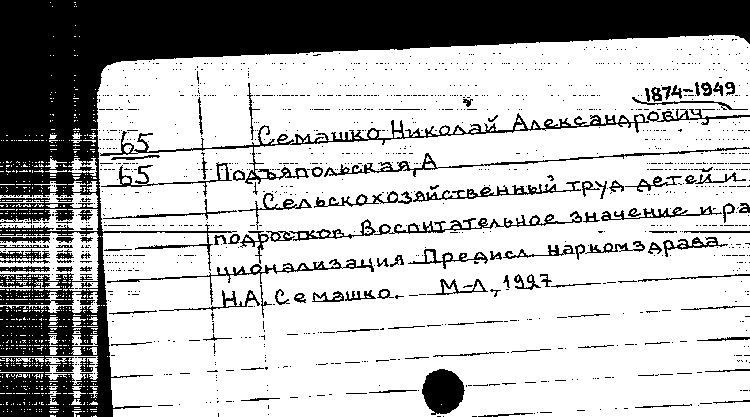 1874-1949
65 Семашко, Николай Александрович,
65 Подъяпольская, А
Сельскохозяйственный труд детей и
подростков. Воспитательное значение и ра
ционализация. Предисл. наркомздрава
Н.А. Семашко. М-Л., 1927